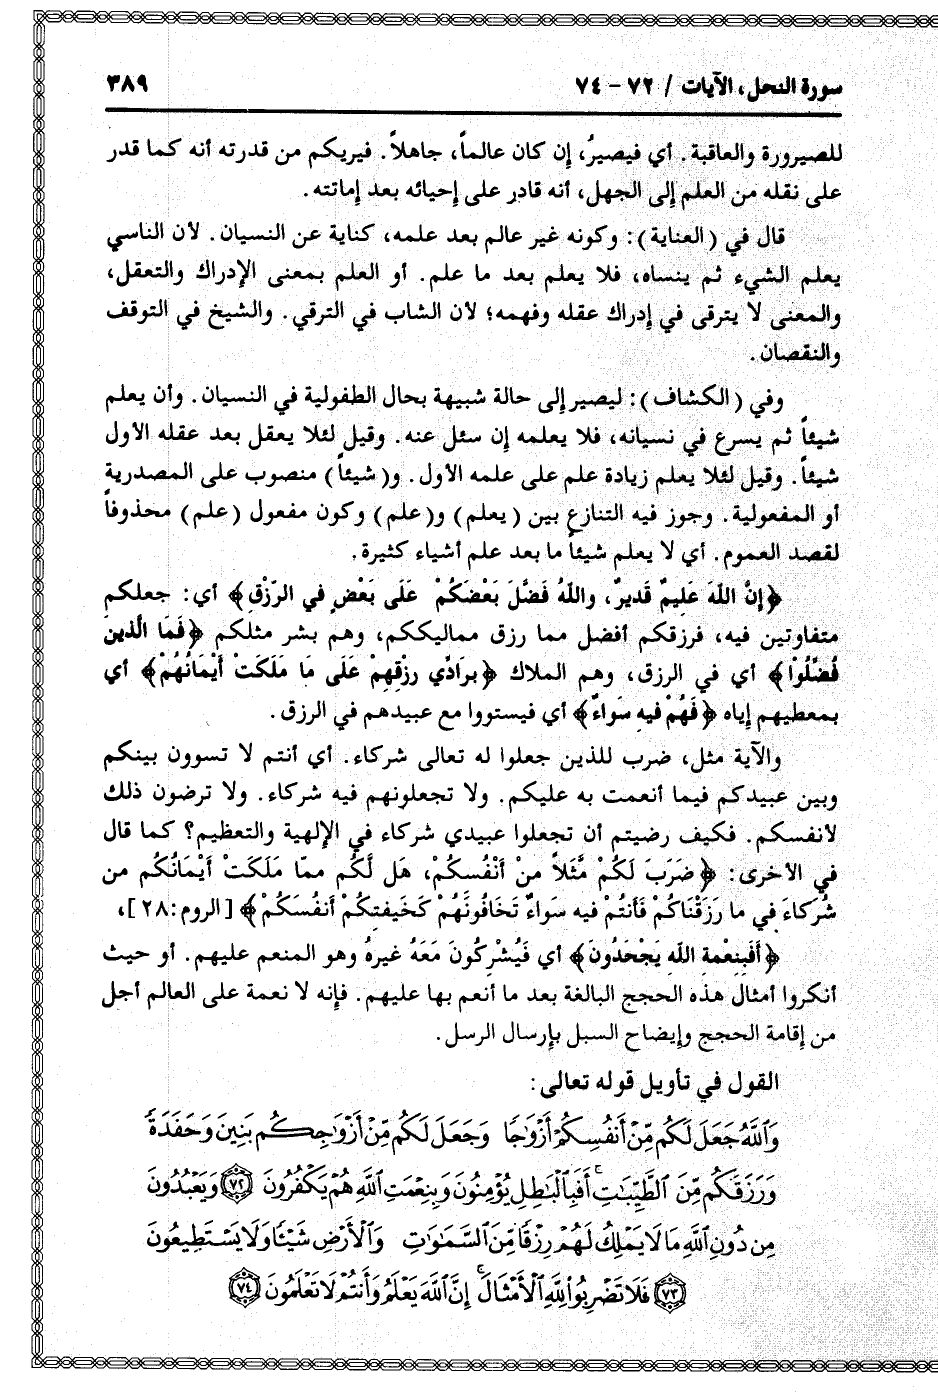 سورة النحل، الآيات / ٧٢ - ٧٤ ٣٨٩
للصيرورة والعاقبة. أي فيصيرُ، إن كان عالماً، جاهلاً. فيريكم من قدرته أنه كما قدر
على نقله من العلم إلى الجهل، أنه قادر على إحيائه بعد إماتته.
قال في (العناية): وكونه غير عالم بعد علمه، كناية عن النسيان. لأن الناسي
يعلم الشيء ثم ينساه، فلا يعلم بعد ما علم. أو العلم بمعنى الإدراك والتعقل،
والمعنى لا يترقى في إدراك عقله وفهمه؛ لأن الشاب في الترقي. والشيخ في التوقف
والنقصان.
وفي (الكشاف): ليصير إلى حالة شبيهة بحال الطفولية في النسيان. وأن يعلم
شيئاً ثم يسرع في نسيانه، فلا يعلمه إن سئل عنه. وقيل لئلا يعقل بعد عقله الأول
شيئاً. وقيل لئلا يعلم زيادة علم على علمه الأول. و(شيئاً) منصوب على المصدرية
أو المفعولية. وجوز فيه التنازع بين (يعلم) و(علم) وكون مفعول (علم) محذوفاً
لقصد العموم. أي لا يعلم شيئاً ما بعد علم أشياء كثيرة.
﴿إِنَّ اللهَ عَلِيمٌ قَدِيرٌ، واللهُ فَضَّلَ بَعْضَكُمْ عَلَى بَعْضٍ فِي الرِّزْقِ﴾ أي: جعلكم
متفاوتين فيه، فرزقكم أفضل مما رزق مماليككم، وهم بشر مثلكم ﴿فَمَا الَّذِينَ
فُضِّلُوا﴾ أي في الرزق، وهم الملاك ﴿بِرَادِّي رِزْقِهِمْ عَلَى مَا مَلَكَتْ أَيْمَانُهُمْ﴾ أي
بمعطيهم إياه ﴿فَهُمْ فِيهِ سَوَاءٌ﴾ أي فيستووا مع عبيدهم في الرزق.
والآية مثل، ضرب للذين جعلوا له تعالى شركاء. أي أنتم لا تسوون بينكم
وبين عبيدكم فيما أنعمت به عليكم. ولا تجعلونهم فيه شركاء. ولا ترضون ذلك
لأنفسكم. فكيف رضيتم أن تجعلوا عبيدي شركاء في الإلهية والتعظيم؟ كما قال
في الأخرى: ﴿ضَرَبَ لَكُمْ مَّثَلاً مِنْ أَنْفُسِكُمْ، هَل لَّكُم مِمَّا مَلَكَتْ أَيْمَانُكُم مِن
شُرَكَاءَ فِي مَا رَزَقْنَاكُمْ فَأَنتُمْ فِيهِ سَوَاءٌ تَخَافُونَهُمْ كَخِيفَتِكُمْ أَنفُسَكُمْ﴾ [الروم:٢٨]،
﴿أَفَبِنِعْمَةِ اللهِ يَجْحَدُونَ﴾ أي فَيُشْرِكُونَ مَعَهُ غيرهُ وهو المنعم عليهم. أو حيث
أنكروا أمثال هذه الحجج البالغة بعد ما أنعم بها عليهم. فإنه لا نعمة على العالم أجل
من إقامة الحجج وإيضاح السبل بإرسال الرسل.
القول في تأويل قوله تعالى:
وَٱللَّهُ جَعَلَ لَكُم مِّنْ أَنفُسِكُمْ أَزْوَٰجًا وَجَعَلَ لَكُم مِّنْ أَزْوَٰجِكُم بَنِينَ وَحَفَدَةً
وَرَزَقَكُم مِّنَ ٱلطَّيِّبَٰتِ ۚ أَفَبِٱلْبَٰطِلِ يُؤْمِنُونَ وَبِنِعْمَتِ ٱللَّهِ هُمْ يَكْفُرُونَ ٧٢ وَيَعْبُدُونَ
مِن دُونِ ٱللَّهِ مَا لَا يَمْلِكُ لَهُمْ رِزْقًا مِّنَ ٱلسَّمَٰوَٰتِ وَٱلْأَرْضِ شَيْـًٔا وَلَا يَسْتَطِيعُونَ
٧٣ فَلَا تَضْرِبُوا۟ لِلَّهِ ٱلْأَمْثَالَ ۚ إِنَّ ٱللَّهَ يَعْلَمُ وَأَنتُمْ لَا تَعْلَمُونَ ٧٤